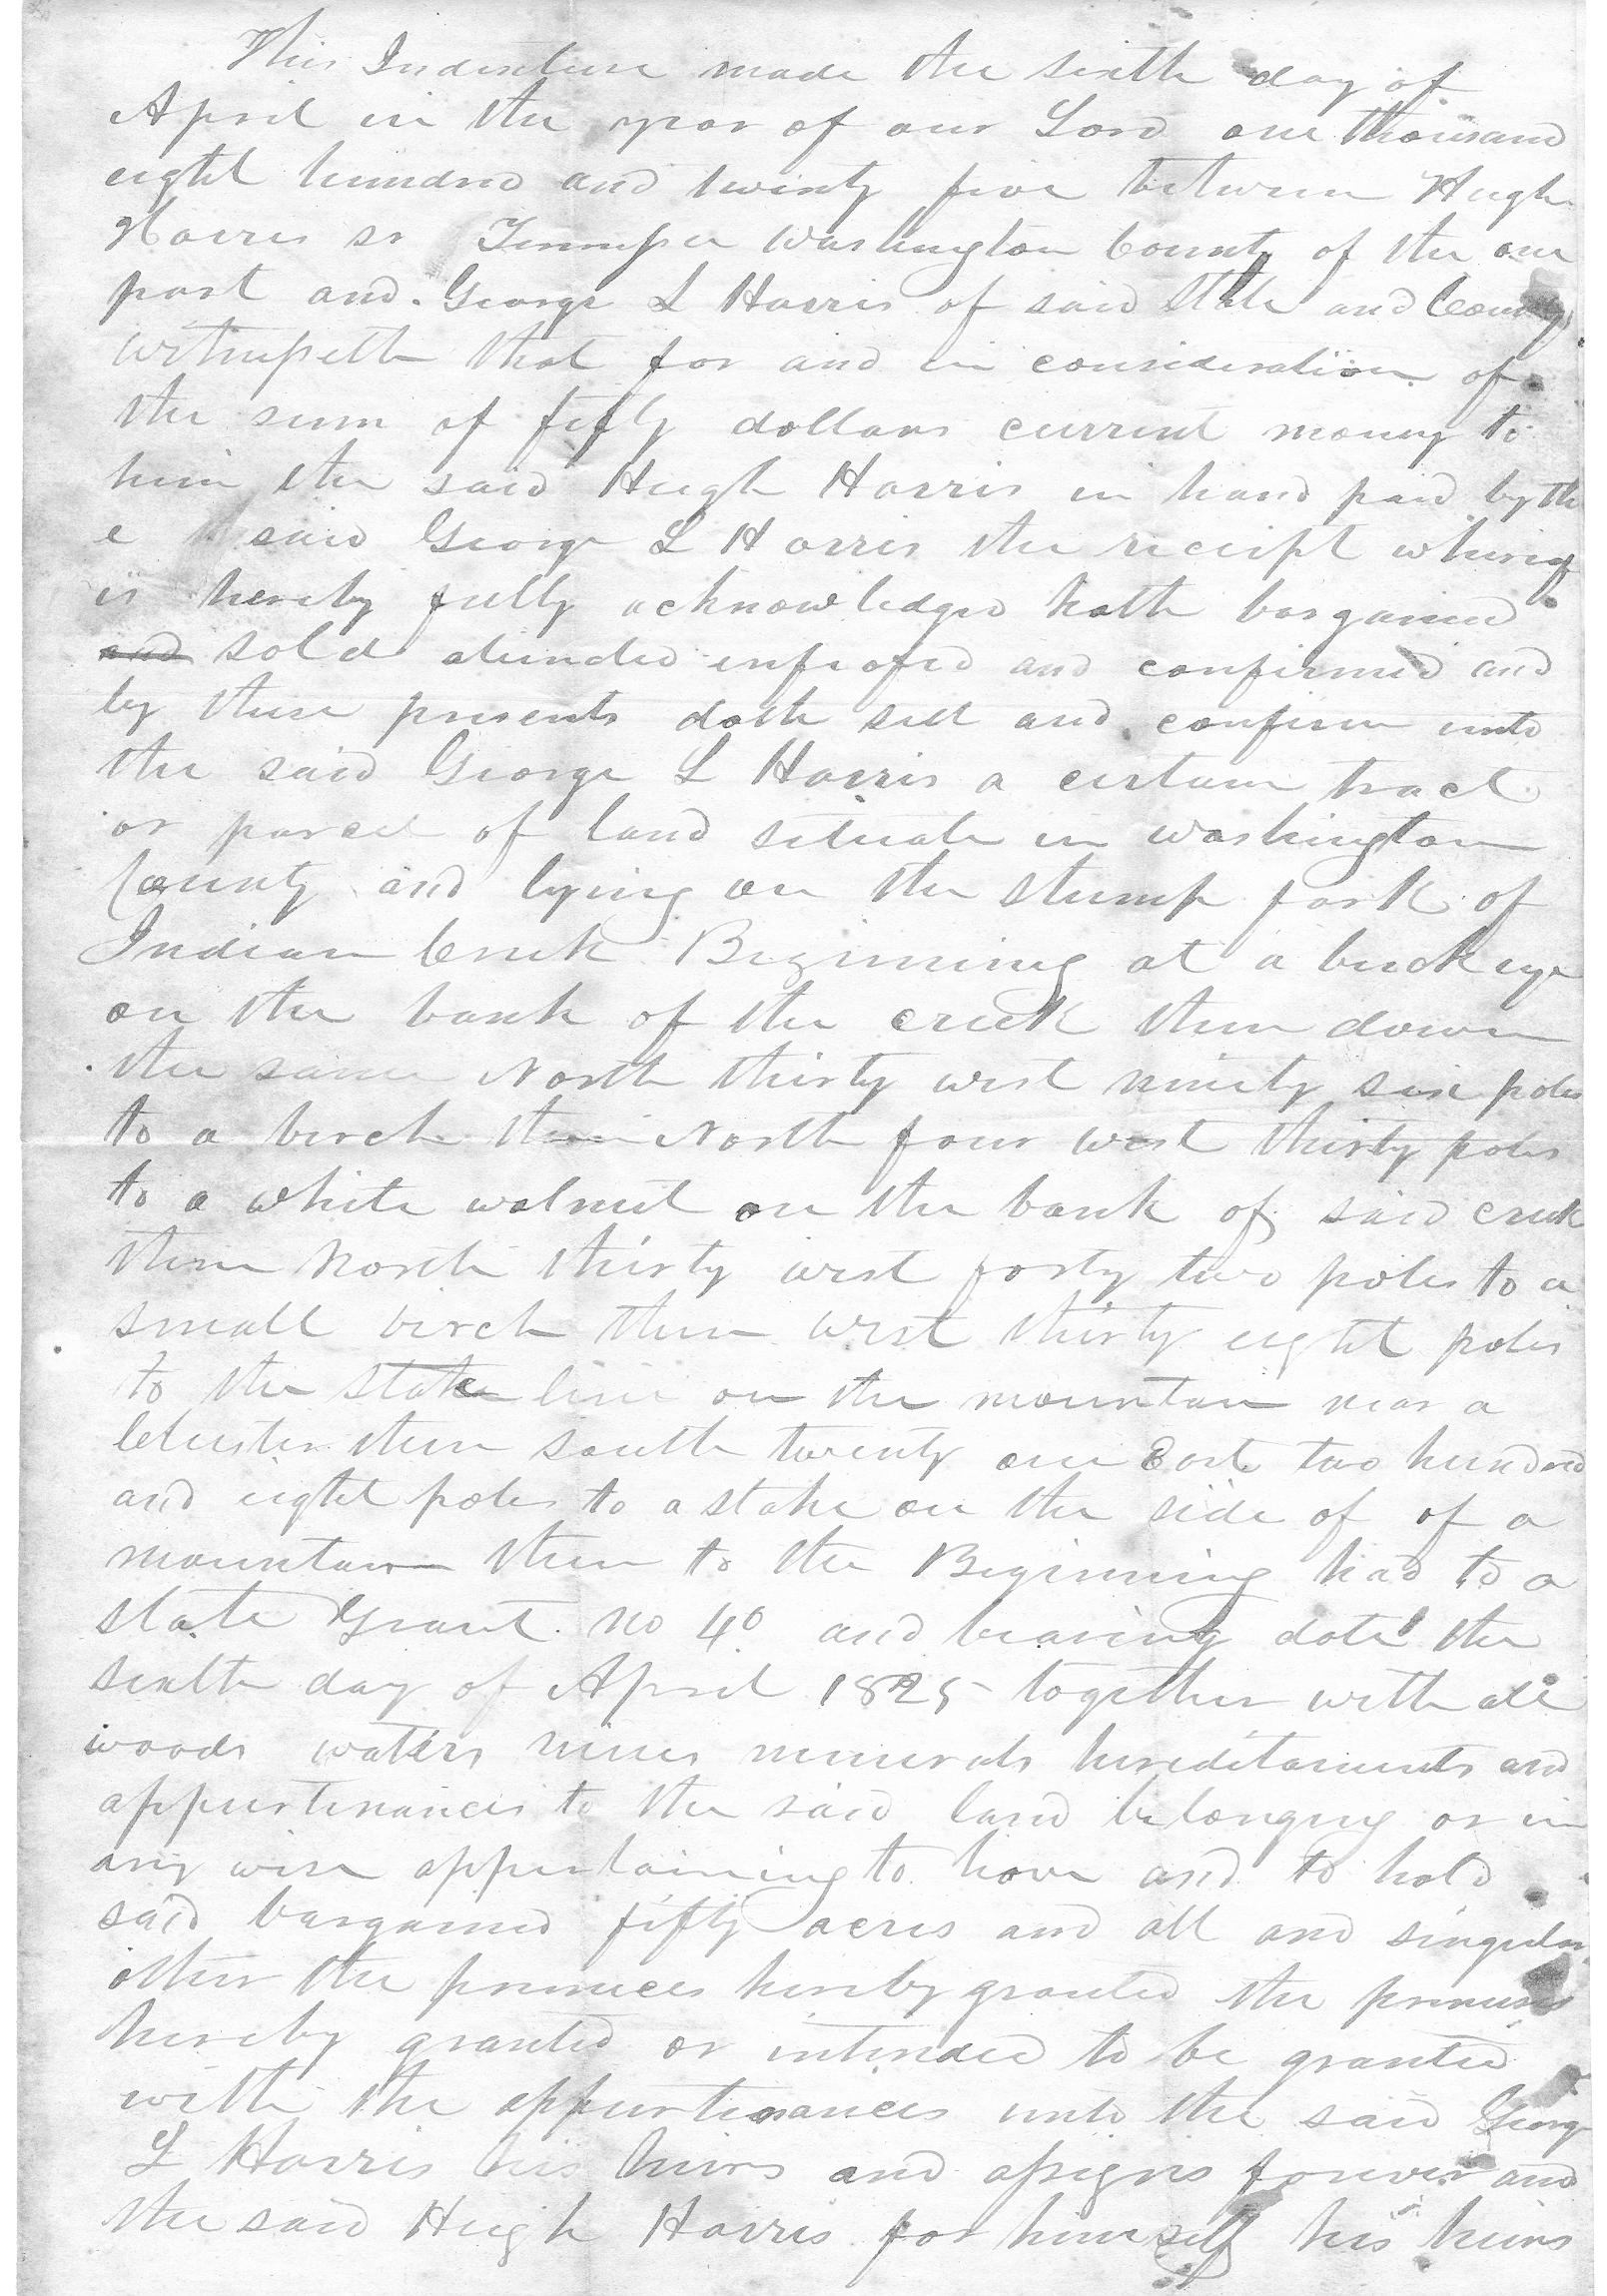 This Indenture made the sixth day of
April in the year of our Lord one thousand
eight hundred and twenty five between Hugh
Harris sr Tennessee Washington County of the one
part and George L Harris of said State and County
witnesseth that for and in consideration of
the sum of fifty dollars current money to
him the said Hugh Harris in hand paid by th
e said George L Harris the receipt whereof
is hereby fully acknowledged hath bargained
and sold aliended enfeofed and confirmed and
by these presents doth sell and confirm unto
the said George L Harris a certain tract
or parcel of land situate in Washington
County and lying on the stump fork of
Indian Creek Beginning at a buckeye
on the bank of the creek then down
the same North thirty west ninety six poles
to a birch then North four west thirty poles
to a white walnut on the bank of said creek
then North thirty west forty two poles to a
small birch then west thirty eight poles
to the state line on the mountain near a
then south twenty one East two hundred
and eight poles to a stake on the side of of a
mountain then to the Beginning had to a
state Grant no 40 and bearing date the
sixth day of April 1825 together with all
woods waters mines minerals hereditaments and
appurtenances to the said land belonging or in
any wise appertaining to have and to hold
said bargained fifty acres and all and singular
other the premices hereby granted the premises
hereby granted or intended to be granted
with the appurtenances unto the said George
L Harris his heirs and assigns forever and
the said Hugh Harris for himself his heirs